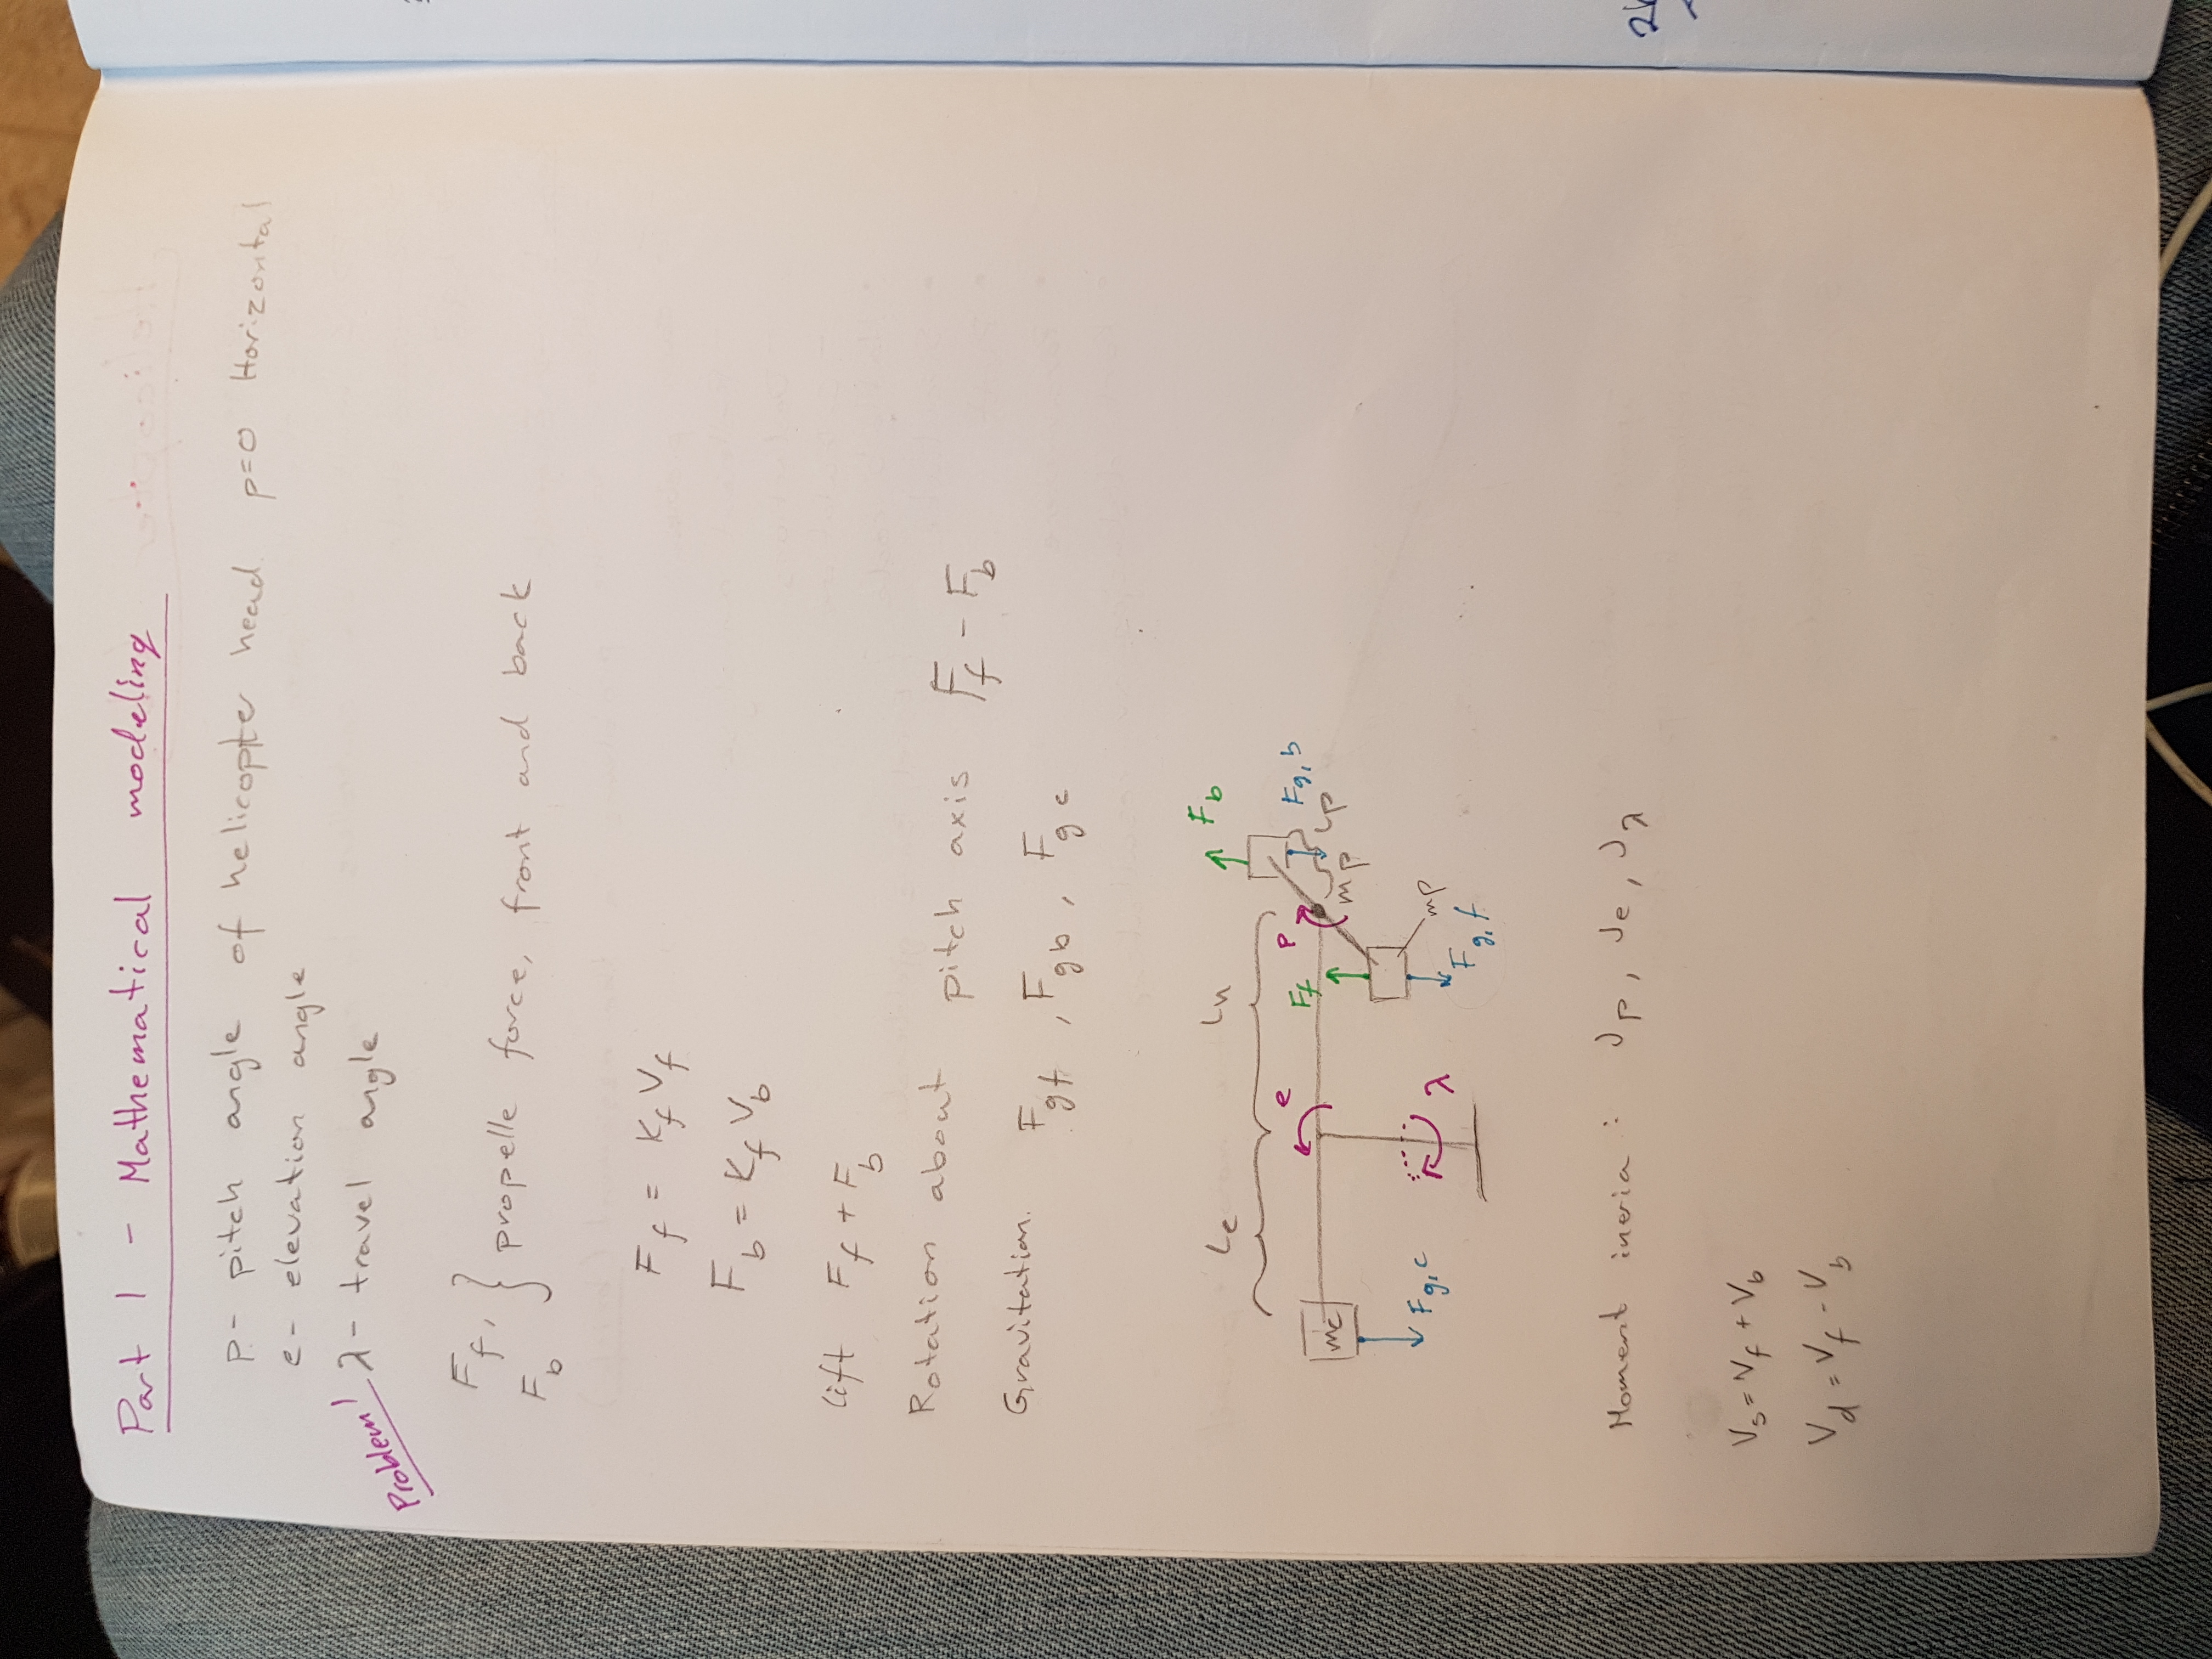 Part 1 - Mathematical modeling
p- pitch angle of helicopter head. p=0 Horizontal
e- elevation angle
Problem 1
λ- travel angle
F_f,
F_b } propelle force, front and back
F_f = K_f V_f
F_b = K_f V_b
lift F_f + F_b
Rotation about pitch axis F_f - F_b
Gravitation. F_gf, F_gb, F_gc
F_b
L_c L_h
e p
F_f F_g,b
m_c m_p L_p
F_g,c λ m_p
F_g,f
Moment ineria: J_p, J_e, J_λ
V_s = V_f + V_b
V_d = V_f - V_b